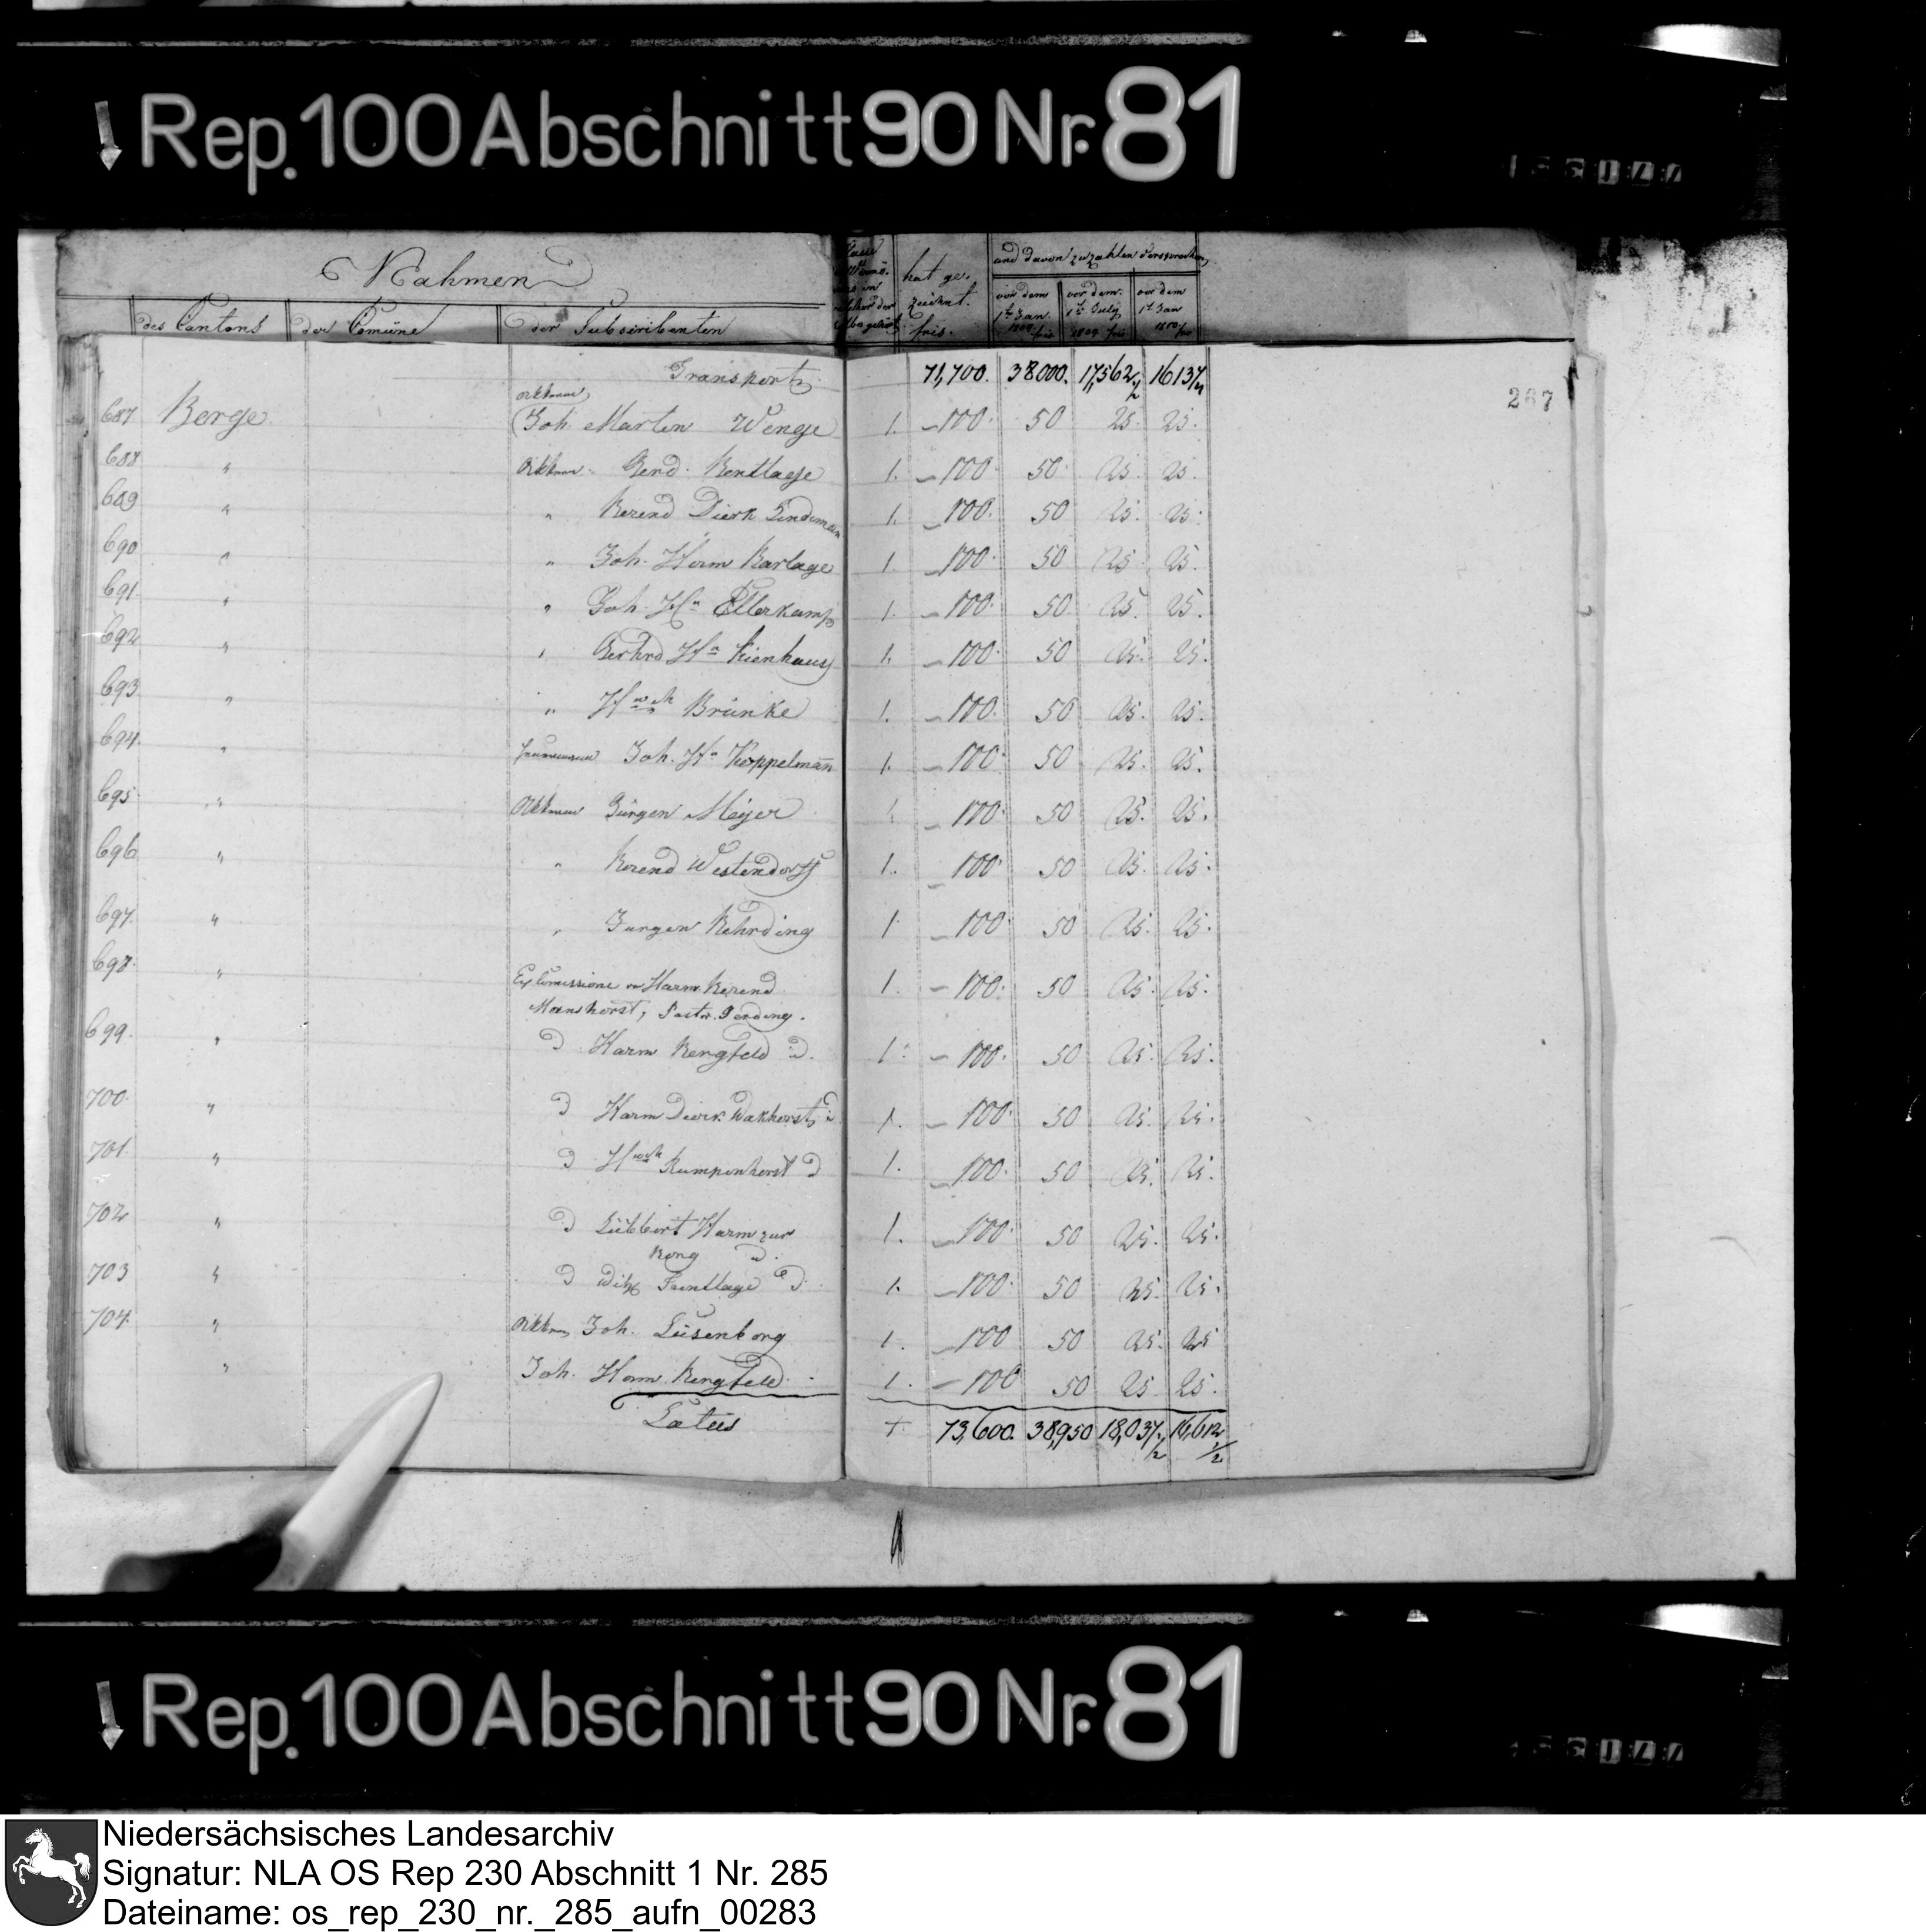 Rep. 100 Abschnitt 90 Nr. 81
Nahmen
des Cantons der Comüne der Subscribenten
hat ge-
zeichnet.
frcs.
und davon zu zahlen versprochen,
vor dem 1ten Jan. 1809 frcs vor dem 1ten July 1809 frcs vor dem 1t Jan 1810 frc
267
Transport 71,700. 38000. 17,562 1/2 16137 1/2
687 Berge Joh. Marten Wenge 1. 100. 50 25. 25.
688 " Gerd. Rentlage 1. 100 50 25. 25.
689 " " Berend Dierk Lindeman 1. 100. 50 25. 25.
690 " " Joh. Herm Barlage 1. 100. 50 25 25.
691 " " Joh. Hn Ellerkamp 1. 100. 50 25. 25.
692 " " Gerhrd Hn Kienhaus 1. 100. 50 25. 25.
693 " " Hinrch Brünke 1. 100. 50 25. 25.
694 " Joh. Hn Koppelman 1. 100 50 25. 25.
695 " Jürgen Meyer 1. 100. 50 25. 25.
696 " " Berend Westendorff 1. 100. 50 25. 25.
697. " " Jurgen Rehrding 1 100. 50 25. 25.
698. " Ex Comissione v Harm Berend 1. 100. 50 25. 25.
Manshorst, Pastor
699. " D Harm Bergfeld D. 1. 100. 50 25. 25.
700. " D Harm Dierk Wakhorst D 1. 100. 50 25. 25.
701. " D Hinrch Rumpenhorst D 1. 100. 50 25. 25.
702 " D Lübbert Harm zur 1. 100. 50 25. 25.
Borg D.
703 " D Frentlage D. 1. 100. 50 25. 25.
704. " Joh. Lüsenborg 1. 100 50 25. 25
" Joh. Harm Bergfeld 1. 100 50 25 25.
Latus 73,600. 38,950 18,037 1/2 16,612 1/2
Rep. 100 Abschnitt 90 Nr. 81
Niedersächsisches Landesarchiv
Signatur: NLA OS Rep 230 Abschnitt 1 Nr. 285
Dateiname: os_rep_230_nr._285_aufn_00283